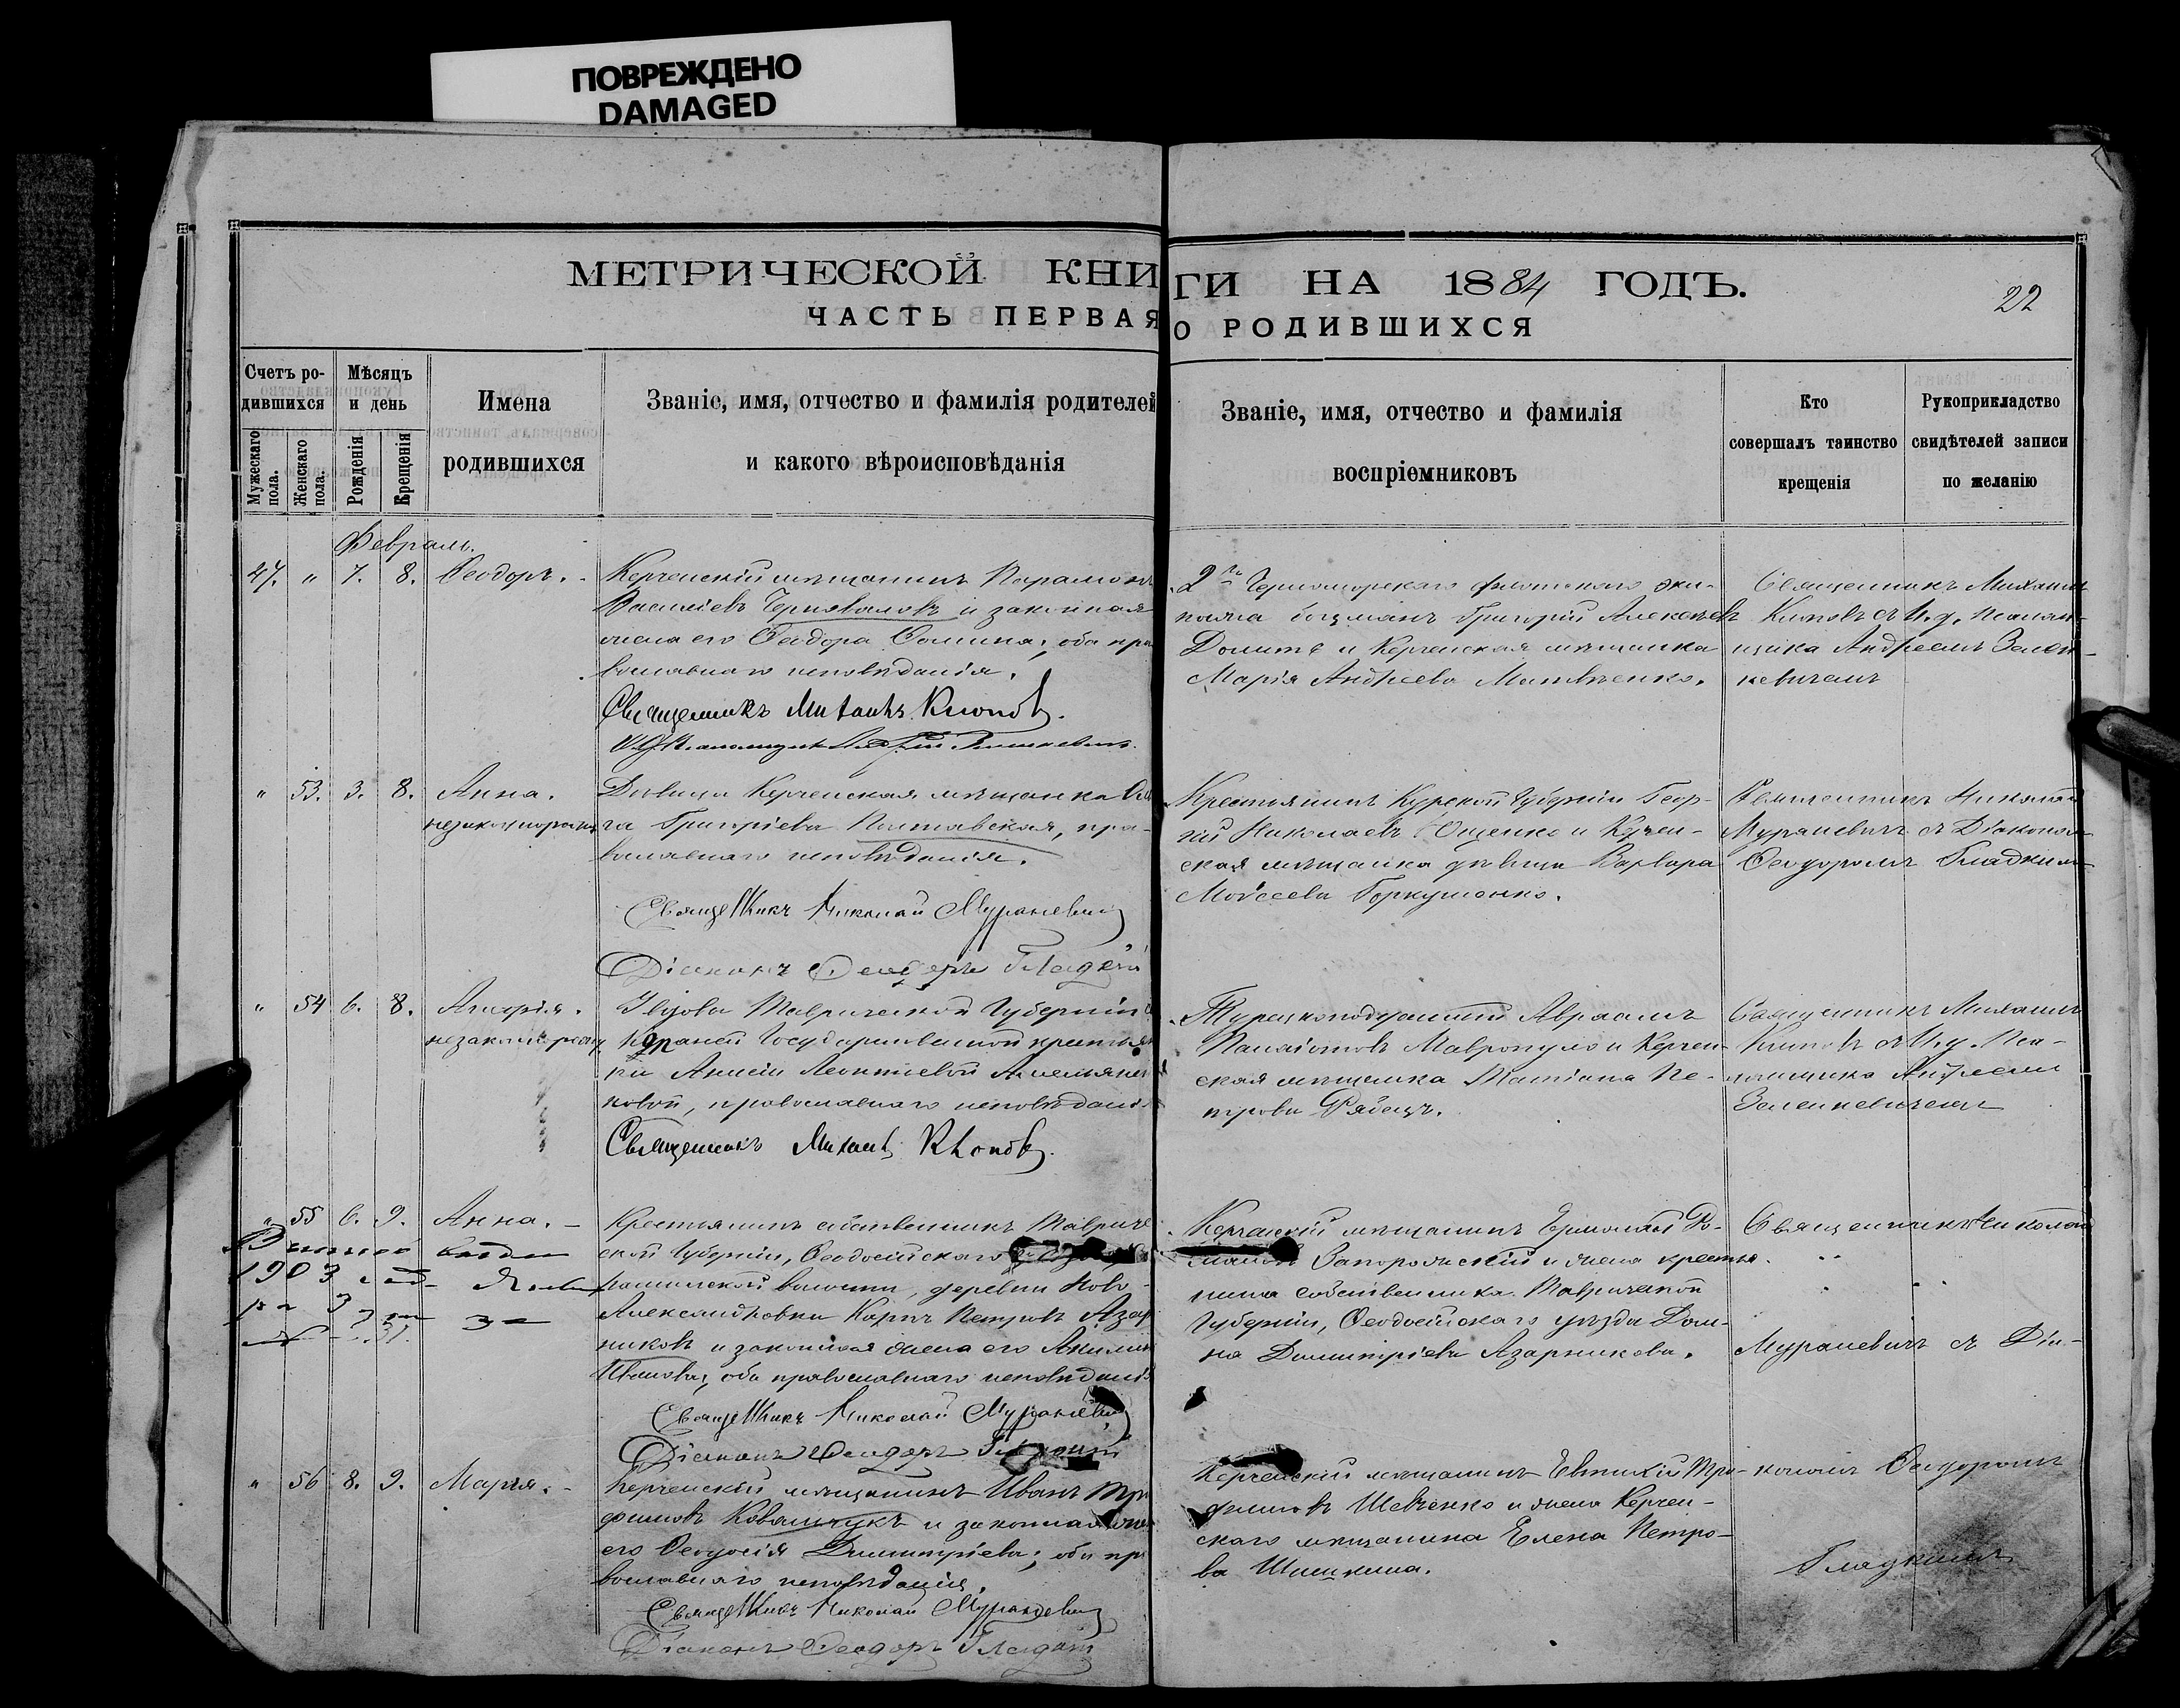 ПОВРЕЖДЕНО
DAMAGED
МЕТРИЧЕСКОЙ КНИГИ НА 1884 ГОДЪ.
22
ЧАСТЬ ПЕРВАЯ О РОДИВШИХСЯ
Счетъ ро-
дившихся
Мужескаго пола.
Женскаго пола.
Мѣсяцъ
и день
Рожденія
Крещенія
Имена
родившихся
Званіе, имя, отчество и фамилія родителей
и какого вѣроисповѣданія
Званіе, имя, отчество и фамилія
воспріемниковъ
Кто
совершалъ таинство
крещенія
Рукоприкладство
свидѣтелей записи
по желанію
Февраль.
27. " 7. 8. Ѳеодоръ.
Керченскій мѣщанинъ Парамонъ
Василіевъ и законная
жена его Ѳеодора Ѳомина; оба пра
вославнаго исповѣданія.
Священникъ Михаилъ Клоповъ.
2го Черноморскаго флотскаго эки-
пажа боцманъ Григорій Алексѣевъ
и Керченская мѣщанка
Марія Андреева Матвѣенко.
Священникъ Михаилъ
Клоповъ съ И. д. псалом-
щика Андреемъ Зелен-
кевичемъ
" 53. 3. 8. Анна.
незаконнорожд
Дѣвица Керченская мѣщанка Оль
га Григоріева Полтавская, пра-
вославнаго исповѣданія.
Священникъ Николай Мураневичъ
Діаконъ Ѳеодоръ Гладкій
Крестьянинъ Курской Губерніи Геор-
гій Николаевъ Ющенко и Керчен-
ская мѣщанка дѣвица Варвара
Моѵсеева
Священникъ Николай
Мураневичъ съ Діакономъ
Ѳеодоромъ Гладкимъ
" 54 6. 8.
незаконнорожд
Таврической Губерніи
Государственной крестьян
ки Леонтіевой
ковой, православнаго исповѣдані
Священникъ Михаилъ Клоповъ.
Турецкоподданный Авраамъ
Панаіотовъ Мавропуло и Керчен-
ская мѣщанка Татіана Пе-
трова Рябецъ.
Священникъ Михаилъ
Клоповъ съ И. д. Пса-
ломщика Андреемъ
Зеленкевичемъ
" 55 6. 9. Анна.
1903
Крестьянинъ собственникъ Тавриче
ской Губерніи, Ѳеодосійскаго
волости, деревни Ново-
Александровки Карпъ Петровъ Азар
никовъ и законная жена его Акилин
Иванова; оба православнаго исповѣдані
Священникъ Николай Мураневичъ
Діаконъ Ѳеодоръ Гладкій
Керченскій мѣщанинъ Ермолай Ро-
мановъ Запорожскій и жена крестья-
нина собственника Таврической
Губерніи, Ѳеодосійскаго уѣзда Дом-
на Димитріева Азарникова.
Священникъ Николай
Мураневичъ съ Діа-
" 56 8. 9. Марія.
Керченскій мѣщанинъ Иванъ Тро
фимовъ Ковальчукъ и законная жена
его Ѳеодосія Димитріева; оба пра
вославнаго исповѣданія.
Священникъ Николай Мураневичъ
Діаконъ Ѳеодоръ Гладкій
Керченскій мѣщанинъ Евтихій Тро-
фимовъ Шевченко и жена Керчен-
скаго мѣщанина Елена Петро-
ва Шишкина.
кономъ Ѳеодоромъ
Гладкимъ